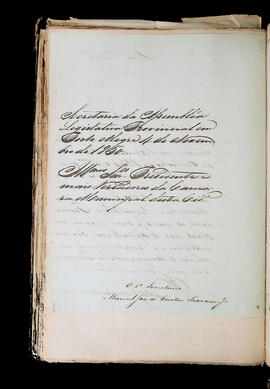 Secretaria da Assemblea
Legislativa Provincial em
Porto Alegre 4 de Novem
bro de 1850
Illmos Snrs Presidente e
mais Vereadores da Cama
ra Municipal desta Ci
O 1º Secretario
Manoel José de Freitas Travassos Jr